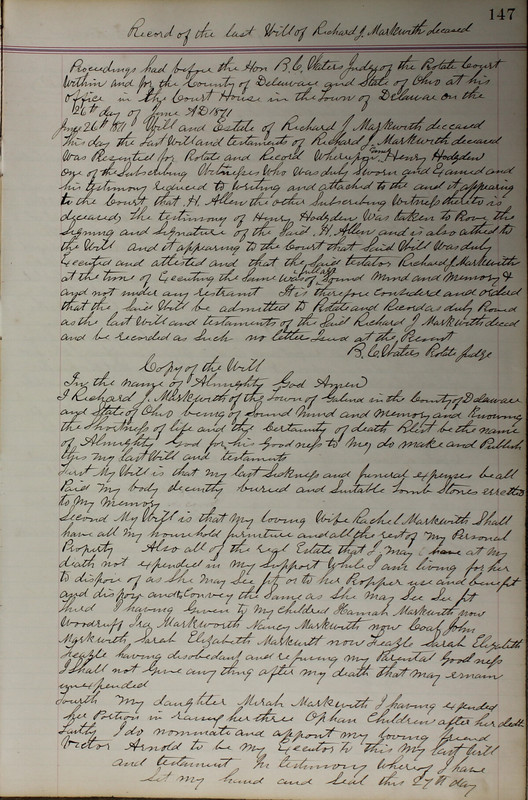 147
Record of the last Will of Richard J Markwith deceased
Proceedings had before the Hon B.C. Waters Judge of the Probate Court
Within and for the County of Delaware and State of Ohio at his
office in the Court House in the Town of Delaware on the
26th day of June AD 1871
June 26th 1871 Will and Estate of Richard J Markwith deceased
This day the Last Will and testaments of Richard J Markwith deceased
Was Presented for Probate and Record Whereupon came Henry Hodgden
One of the Subscribing Witnesses Who was duly Sworn and Examed and
his testimony reduced to Writing and attached to the and it appearing
to the Court that H. Allen the other Subscribing Witness thereto is
deceased the testimony of Henry Hodgden Was taken to Prove the
Signing and Signature of the Said H. Allen and is also atthed to
the Will and it appearing to the Court that Said Will Was duly
Executed and attested and that the Said testator Richard J. Markwith
at the time of Executing the Same Was of full age Sound Mind and Memory &
and not under any restraint It is therefore considered and ordered
that the Said Will be admitted to Probate and Record as duly Proved
as the last Will and testaments of the Said Richard J Markwith deced
and be recorded as Such no letter at the
B.C. Waters Probate Judge
Copy of the Will
In the name of Almighty God Amen
I Richard J. Markwith of the Town of Galena in the County of Delaware
and State of Ohio being of Sound Mind and Memory and Knowing
the Shortness of life and the Certainty of death Blest be the name
of Almighty God for his Goodness to Me, do make and Publish
this my last Will and testaments
First My Will is that my last Sickness and funeral expenses be all
Paid my body decently buried and Suitable Tomb Stones erected
to my Memory
Second My Will is that my loving Wife Rachel Markwith Shall
have all my household furniture and all the rest of my Personal
Property Also all of the real Estate that I may have at my
death not expended in my Support While I am living for her
to dispose of as She May See fit or to her Propper use and benefit
and dispoy and Convey the Same as She May See See fit
Third I having Given to My Children Hannah Markwith now
Woodruff Ira Markworth Nancy Markwith now Coal, John
Markwith, Sarah Elizabeth Markwith now Feazle Sarah Elizabeth
Feazle having disobedant and my Parental Goodness
I Shall not Give any thing after my death that may emain
unexpended
Fourth My daughter Mirah Markwith I having expended
her Portion in raising her three Orphan Children after her death
I do nominate and appoint my friend
Victor Arnold to be my Executor to this My last Will
and testament In testimony Whereof I have
Set my hand and Seal this 27th day